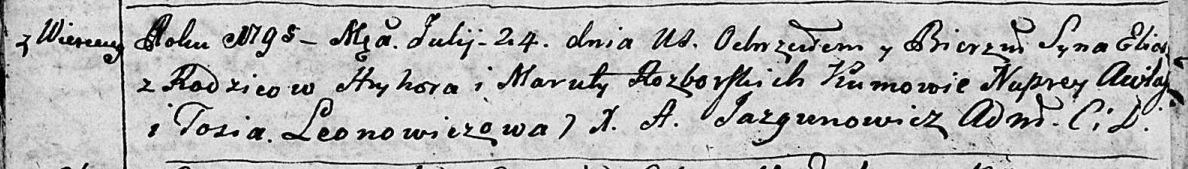 z Wierceny Roku 1795 – Mca. Julij – 24. dnia Us. Ochrzciłem y Bierzm Syna Elia
z Rodzicow Hryhora i Maruty Rozborskich Kumowie Nuprey Awiła
i Tosia. Leonowiczowa) X. A. Jazgunowicz Adm. C. D.